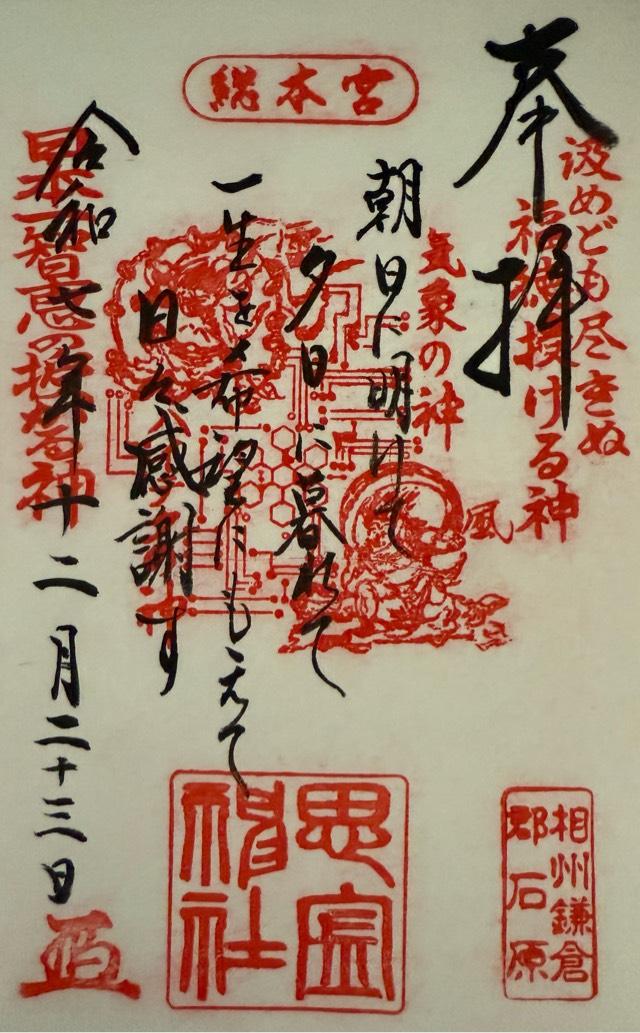 総本宮
奉拝
汲めども尽きぬ
福徳授ける神
気象の神
風
朝日に明けて
夕日に暮れて
一生を希望にもえて
日々感謝す
日本一智恵の授かる神
令和七年十二月二十三日
思金神社
相州鎌倉
郡石原